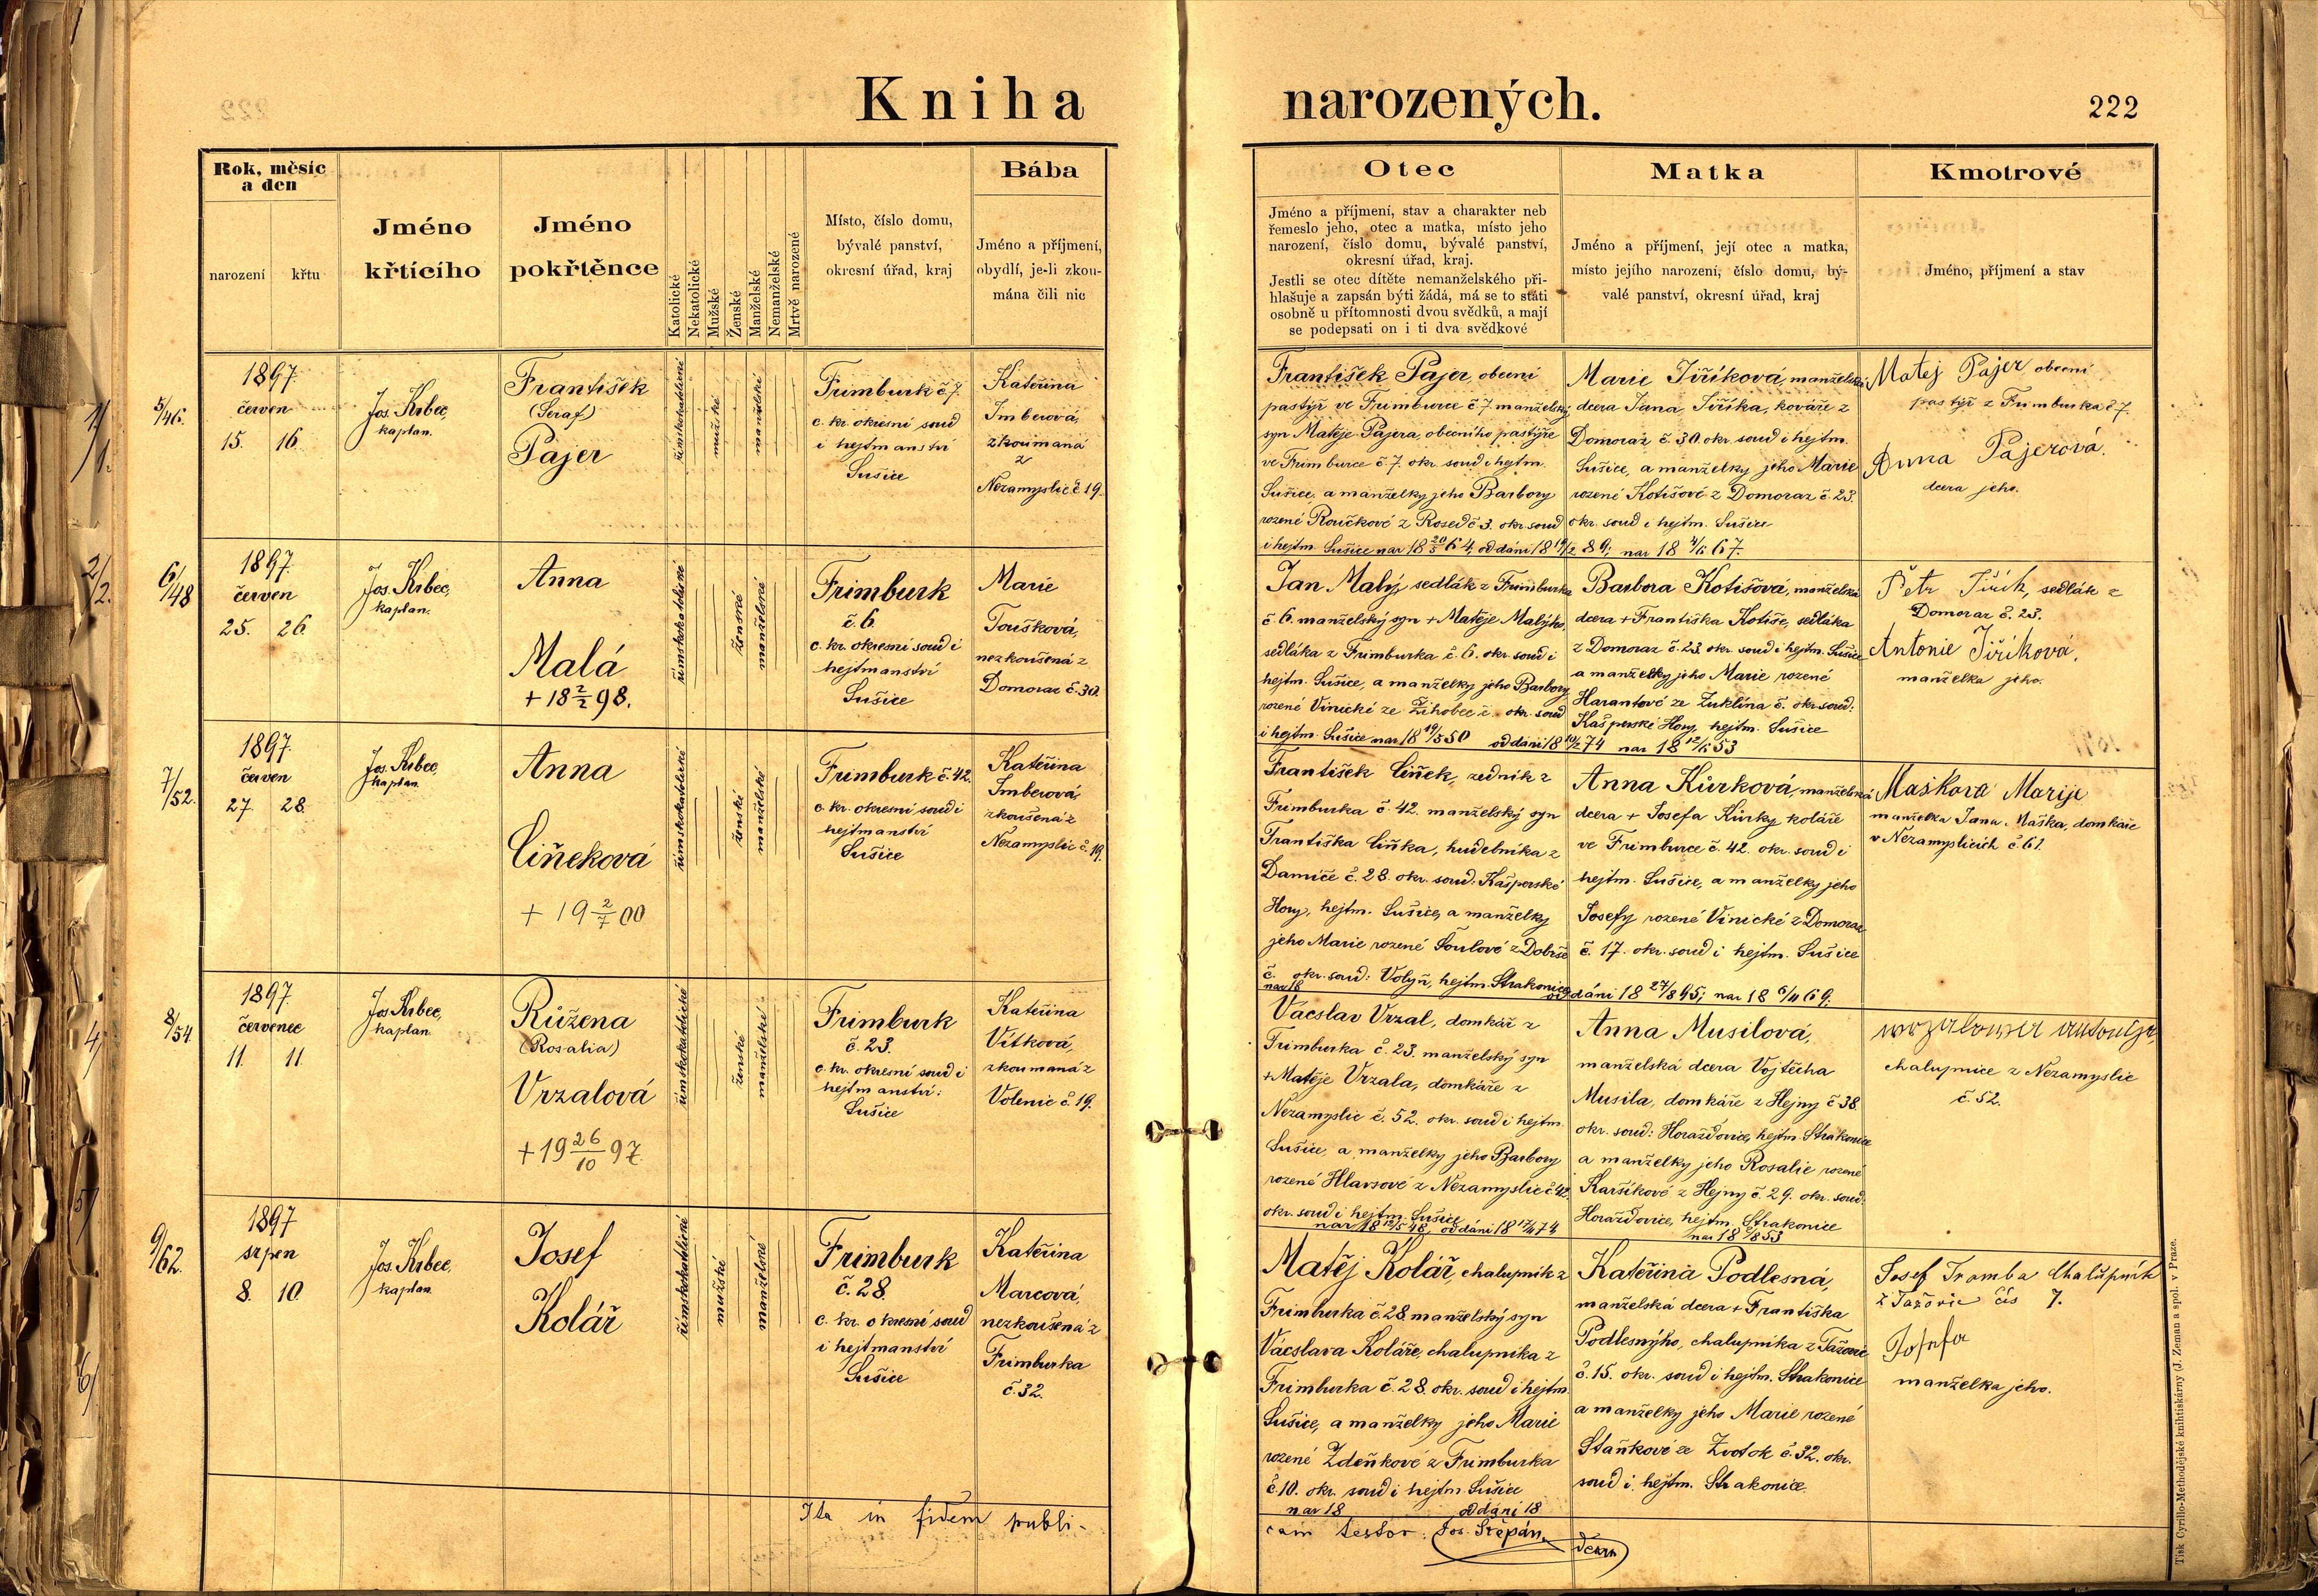 Kniha narozených.
222
Rok, měsíc
a den
narození
křtu
Jméno
křtícího
Jméno
pokřtěnce
Katolické
Nekatolické
Mužské
Ženské
Manželské
Nemanželské
Mrtvě narozené
Místo, číslo domu,
bývalé panství,
okresní úřad, kraj
Bába
Jméno a příjmení,
obydlí, je-li zkou-
mána čili nic
Otec
Jméno a příjmení, stav a charakter neb
řemeslo jeho, otec a matka, místo jeho
narození, číslo domu, bývalé panství,
okresní úřad, kraj.
Jestli se otec dítěte nemanželského při-
hlašuje a zapsán býti žádá, má se to státi
osobně u přítomnosti dvou svědků, a mají
se podepsati on i ti dva svědkové
Matka
Jméno a příjmení, její otec a matka,
místo jejího narození, číslo domu, bý-
valé panství, okresní úřad, kraj
Kmotrové
Jméno, příjmení a stav
1/1.
5/46.
1897.
červen
15. 16.
Jos. Krbec,
kaplan.
František
(Seraf)
Pajer
římskokatolické
mužské
manželské
Frimburk č 7.
c. kr. okresní soud
i hejtmanství
Sušice
Kateřina
Imberová,
zkoumaná
z
Nezamyslic č. 19.
František Pajer, obecní
pastýř ve Frimburce č 7 manželský
syn Matěje Pajera, obecního pastýře
ve Frimburce č 7. okr. soud i hejtm.
Sušice, a manželky jeho Barbory
rozené Roučkové z Rosed č 3. okr. soud
i hejtm. Sušice nar 18 20/5 64, oddáni 18 19/2 89;
Marie Jiříková, manželská
dcera Jana Jiříka, kováře z
Domoraz č. 30 okr. soud i hejtm.
Sušice, a manželky jeho Marie
rozené Kotišové z Domoraz č. 23.
okr. soud i hejtm. Sušice
nar 18 4/6 67.
Matej Pajer obecní
pastýř z Frimburka č 7.
Anna Pajerová.
dcera jeho.
2/2.
6/48
1897.
červen
25. 26.
Jos. Krbec,
kaplan.
Anna
Malá
+ 18 2/2 98.
římskokatolické
ženské
manželské
Frimburk
č. 6.
c. kr. okresní soud i
hejtmanství
Sušice
Marie
Toušková,
nezkoušená z
Domoraz č. 30.
Jan Malý, sedlák z Frimburka
č. 6. manželský syn + Matěje Malýho,
sedláka z Frimburka č. 6. okr. soud i
hejtm. Sušice, a manželky jeho Barbory
rozené Vinické ze Žihobec č. okr. soud
i hejtm. Sušice nar 18 19/5 50 oddáni 18 10/2 74
Barbora Kotišová, manželská
dcera + Františka Kotiše, sedláka
z Domoraz č. 23. okr. soud i hejtm. Sušice
a manželky jeho Marie rozené
Harantové ze Zuklína č. okr. soud:
Kašperské Hory, hejtm. Sušice
nar 18 12/6 53
Petr Jiřík, sedlák z
Domoraz č. 23.
Antonie Jiříková,
manželka jeho.
7/52.
1897.
červen
27. 28.
Jos. Krbec,
kaplan.
Anna
Ciňeková
+ 19 2/7 00
římskokatolické
ženské
manželské
Frimburk č. 42.
c. kr. okresní soud i
hejtmanství
Sušice
Kateřina
Imberová
zkoušená z
Nezamyslic č. 19.
František Ciňek, zedník z
Frimburka č. 42. manželský syn
Františka Ciňka, hudebníka z
Damíče č. 28. okr. soud: Kašperské
Hory, hejtm. Sušice, a manželky
jeho Marie rozené Šoulové z Dobrše
č. okr. soud: Volyň, hejtm. Strakonice
nar 18 oddáni 18 27/8 95;
Anna Kůrková, manželská
dcera + Josefa Kůrky koláře
ve Frimburce č. 42. okr. soud i
hejtm. Sušice, a manželky jeho
Josefy rozené Vinické z Domoraz
č. 17. okr. soud i hejtm. Sušice
nar 18 6/11 69;
Maškova Marije
manželka Jana Maška, domkáře
v Nezamyslicích č. 61.
4/
8/54
1897.
červenec
11. 11.
Jos Krbec,
kaplan.
Růžena
(Rosalia)
Vrzalová
+ 19 26/10 97
římskokatolické
ženské
manželské
Frimburk
č. 23.
c. kr. okresní soud i
hejtmanství:
Sušice
Kateřina
Vítková,
zkoumaná z
Volenic č. 19.
Vácslav Vrzal, domkář z
Frimburka č. 23. manželský syn
+ Matěje Vrzala, domkáře z
Nezamyslic č. 52. okr. soud i hejtm.
Sušice, a manželky jeho Barbory
rozené Hlavsové z Nezamyslic č. 42.
okr. soud i hejtm. Sušice
oddáni 18 17/4 74
Anna Musilová,
manželská dcera Vojtěcha
Musila, domkáře z Hejny č 38.
okr. soud: Horažďovice, hejtm. Strakonice
a manželky jeho Rosalie rozené
Karšíkové z Hejny č. 29. okr. soud:
Horažďovice, hejtm. Strakonice
chalupnice z Nezamyslic
č. 52.
5/
6/
9/62.
1897
srpen
8. 10.
Jos. Krbec,
kaplan.
Josef
Kolář
římskokatolické
mužské
manželské
Frimburk
č. 28.
c. kr. okresní soud
i hejtmanství
Sušice
Kateřina
Marcová,
nezkoušená z
Frimburka
č. 32.
Matěj Kolář, chalupník z
Frimburka č. 28. manželský syn
Vácslava Koláře, chalupníka z
Frimburka č. 28. okr. soud i hejtm.
Sušice, a manželky jeho Marie
rozené Zdeňkové z Frimburka
č. 10. okr. soud i hejtm. Sušice
nar 18 oddáni 18
Kateřina Podlesná,
manželská dcera + Františka
Podlesnýho, chalupníka z Tažovic
č. 15. okr. soud i hejtm. Strakonice
a manželky jeho Marie rozené
Staňkové ze Zvotok č. 32. okr.
soud i hejtm. Strakonice.
Josef Tromba Chalupník
z Tažovic čís 7.
Josefa
manželka jeho.
Ita in fidem publi-
cam testor: Jos. Štěpán,
děkan
Tisk Cyrillo-Methodějské knihtiskárny (J. Zeman a spol. v Praze.